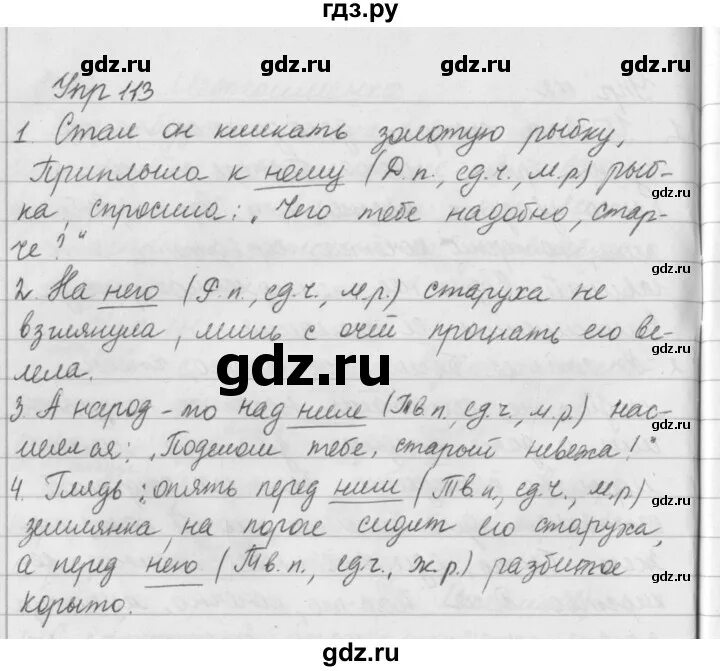 гдз.ру
gdz.ru gdz.ru gdz.ru
Упр 113
1. Стал он кликать золотую рыбку,
Приплыла к нему (Д.п., ед.ч., м.р.) рыб-
gdz.ru
ка, спросила: „Чего тебе надобно, стар-
че?“
gdz.ru
2. На него (Р.п., ед.ч., м.р.) старуха не
взглянула, лишь с очей прогнать его ве-
gdz.ru
лела.
gdz.ru
3. А народ-то над ним (Тв.п., ед.ч., м.р.) нас-
меялся: „Поделом тебе, старый невежа!“
gdz.ru
4. Глядь: опять перед ним (Тв.п., ед.ч., м.р.)
gdz.ru
землянка, на пороге сидит его старуха,
а перед него (Тв.п., ед.ч., ж.р.) разбитое
gdz.ru
корыто.
gdz.ru gdz.ru gdz.ru